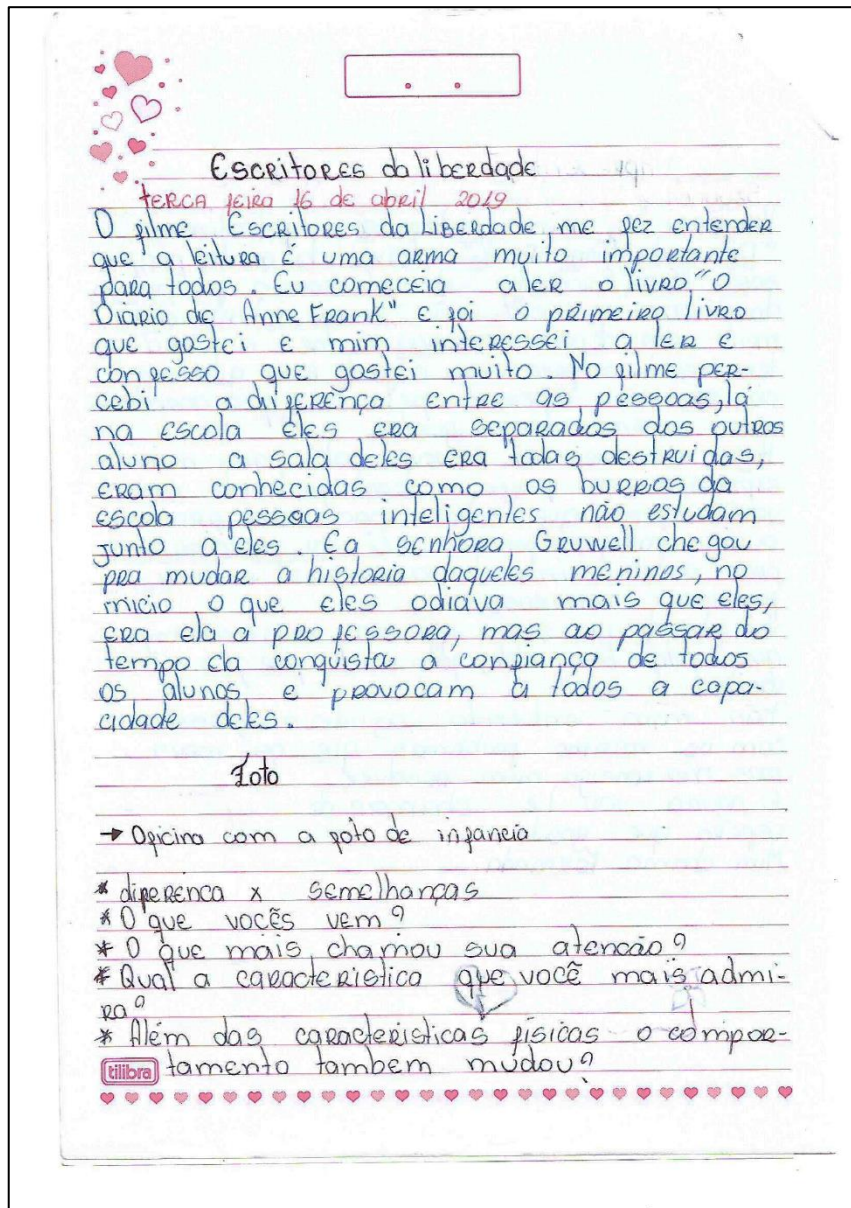 Escritores da liberdade
terca feira 16 de abril 2019
O filme Escritores da Liberdade me fez entender
que a leitura é uma arma muito importante
para todos. Eu comeceia a ler o livro "O
Diário de Anne Frank" e foi o primeiro livro
que gostei e mim interessei a ler e
confesso que gostei muito. No filme per-
cebi a diferença entre as pessoas, lá
na escola eles era separados dos outros
aluno a sala deles era todas destruidas,
eram conhecidas como os burros da
escola pessoas inteligentes não estudam
junto a eles. Ea senhora Gruwell chegou
pra mudar a historia daqueles meninos, no
inicio o que eles odiava mais que eles,
era ela a professora, mas ao passar do
tempo ela conquista a confiança de todos
os alunos e provocam a todos a capa-
cidade deles.
Foto
→ Oficina com a foto de infancia
* diferenca x semelhanças
* O que vocês vem?
* O que mais chamou sua atencão?
* Qual a caracteristica que você mais admi-
ra?
* Além das caracteristicas físicas o compor-
tilibra tamento tambem mudou?